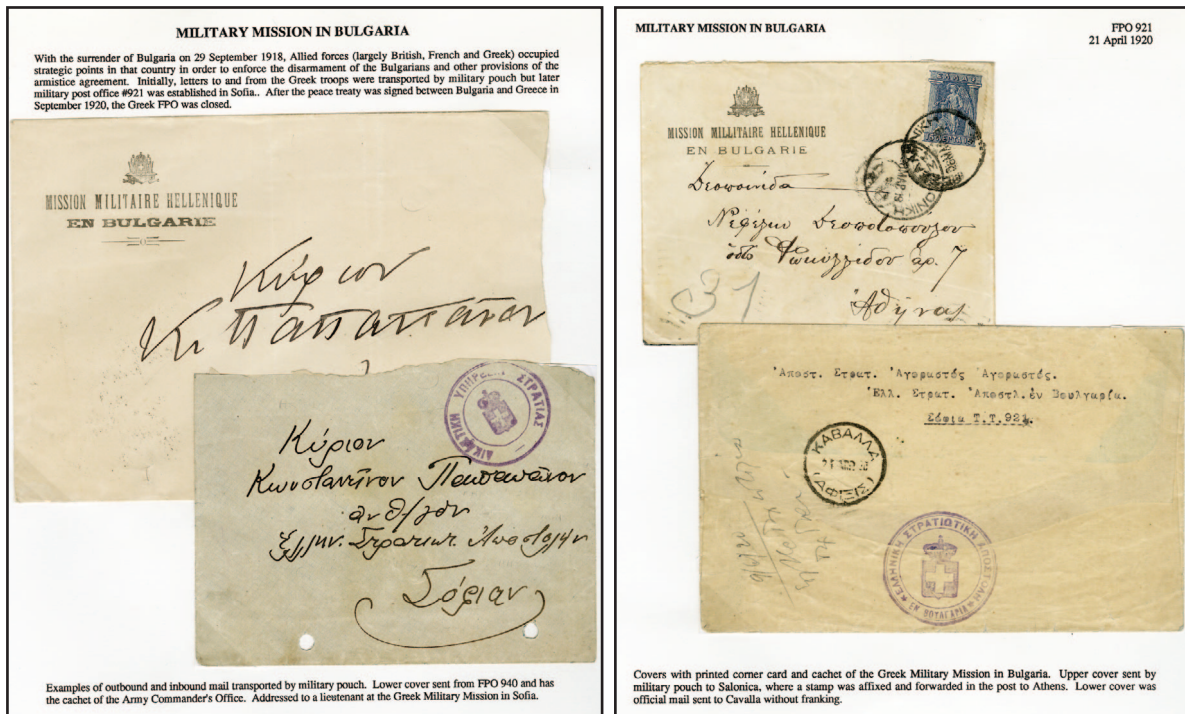 MILITARY MISSION IN BULGARIA
With the surrender of Bulgaria on 29 September 1918, Allied forces (largely British, French and Greek) occupied
strategic points in that country in order to enforce the disarmament of the Bulgarians and other provisions of the
armistice agreement. Initially, letters to and from the Greek troops were transported by military pouch but later
military post office #921 was established in Sofia.. After the peace treaty was signed between Bulgaria and Greece in
September 1920, the Greek FPO was closed.
MISSION MILITAIRE HELLENIQUE
EN BULGARIE
Κύριον
Κ. Παπαπάνον
ΔΙΚΑΣΤΙΚΗ ΥΠΗΡΕΣΙΑ ΣΤΡΑΤΙΑΣ
Κύριον
Κωνσταντῖνον Παπαπάνον
ανθ/γὸν
Σόφιαν
Examples of outbound and inbound mail transported by military pouch. Lower cover sent from FPO 940 and has
the cachet of the Army Commander's Office. Addressed to a lieutenant at the Greek Military Mission in Sofia.
MILITARY MISSION IN BULGARIA
FPO 921
21 April 1920
MISSION MILITAIRE HELLENIQUE
EN BULGARIE
Δεσποινίδα
ὁδὸς Φωκυλίδου ἀρ. 7
Ἀθήνας
Ἀποστ. Στρατ. Ἀγοραστής Ἀγοραστής.
Ἑλλ. Στρατ. Ἀποστλ. ἐν Βουλγαρία.
Σόφια Τ.Τ.921.
ΚΑΒΑΛΛΑ
(ΑΦΙΞΙΣ)
ΕΛΛΗΝΙΚΗ ΣΤΡΑΤΙΩΤΙΚΗ ΑΠΟΣΤΟΛΗ
ΕΝ ΒΟΥΛΓΑΡΙΑ
Covers with printed corner card and cachet of the Greek Military Mission in Bulgaria. Upper cover sent by
military pouch to Salonica, where a stamp was affixed and forwarded in the post to Athens. Lower cover was
official mail sent to Cavalla without franking.